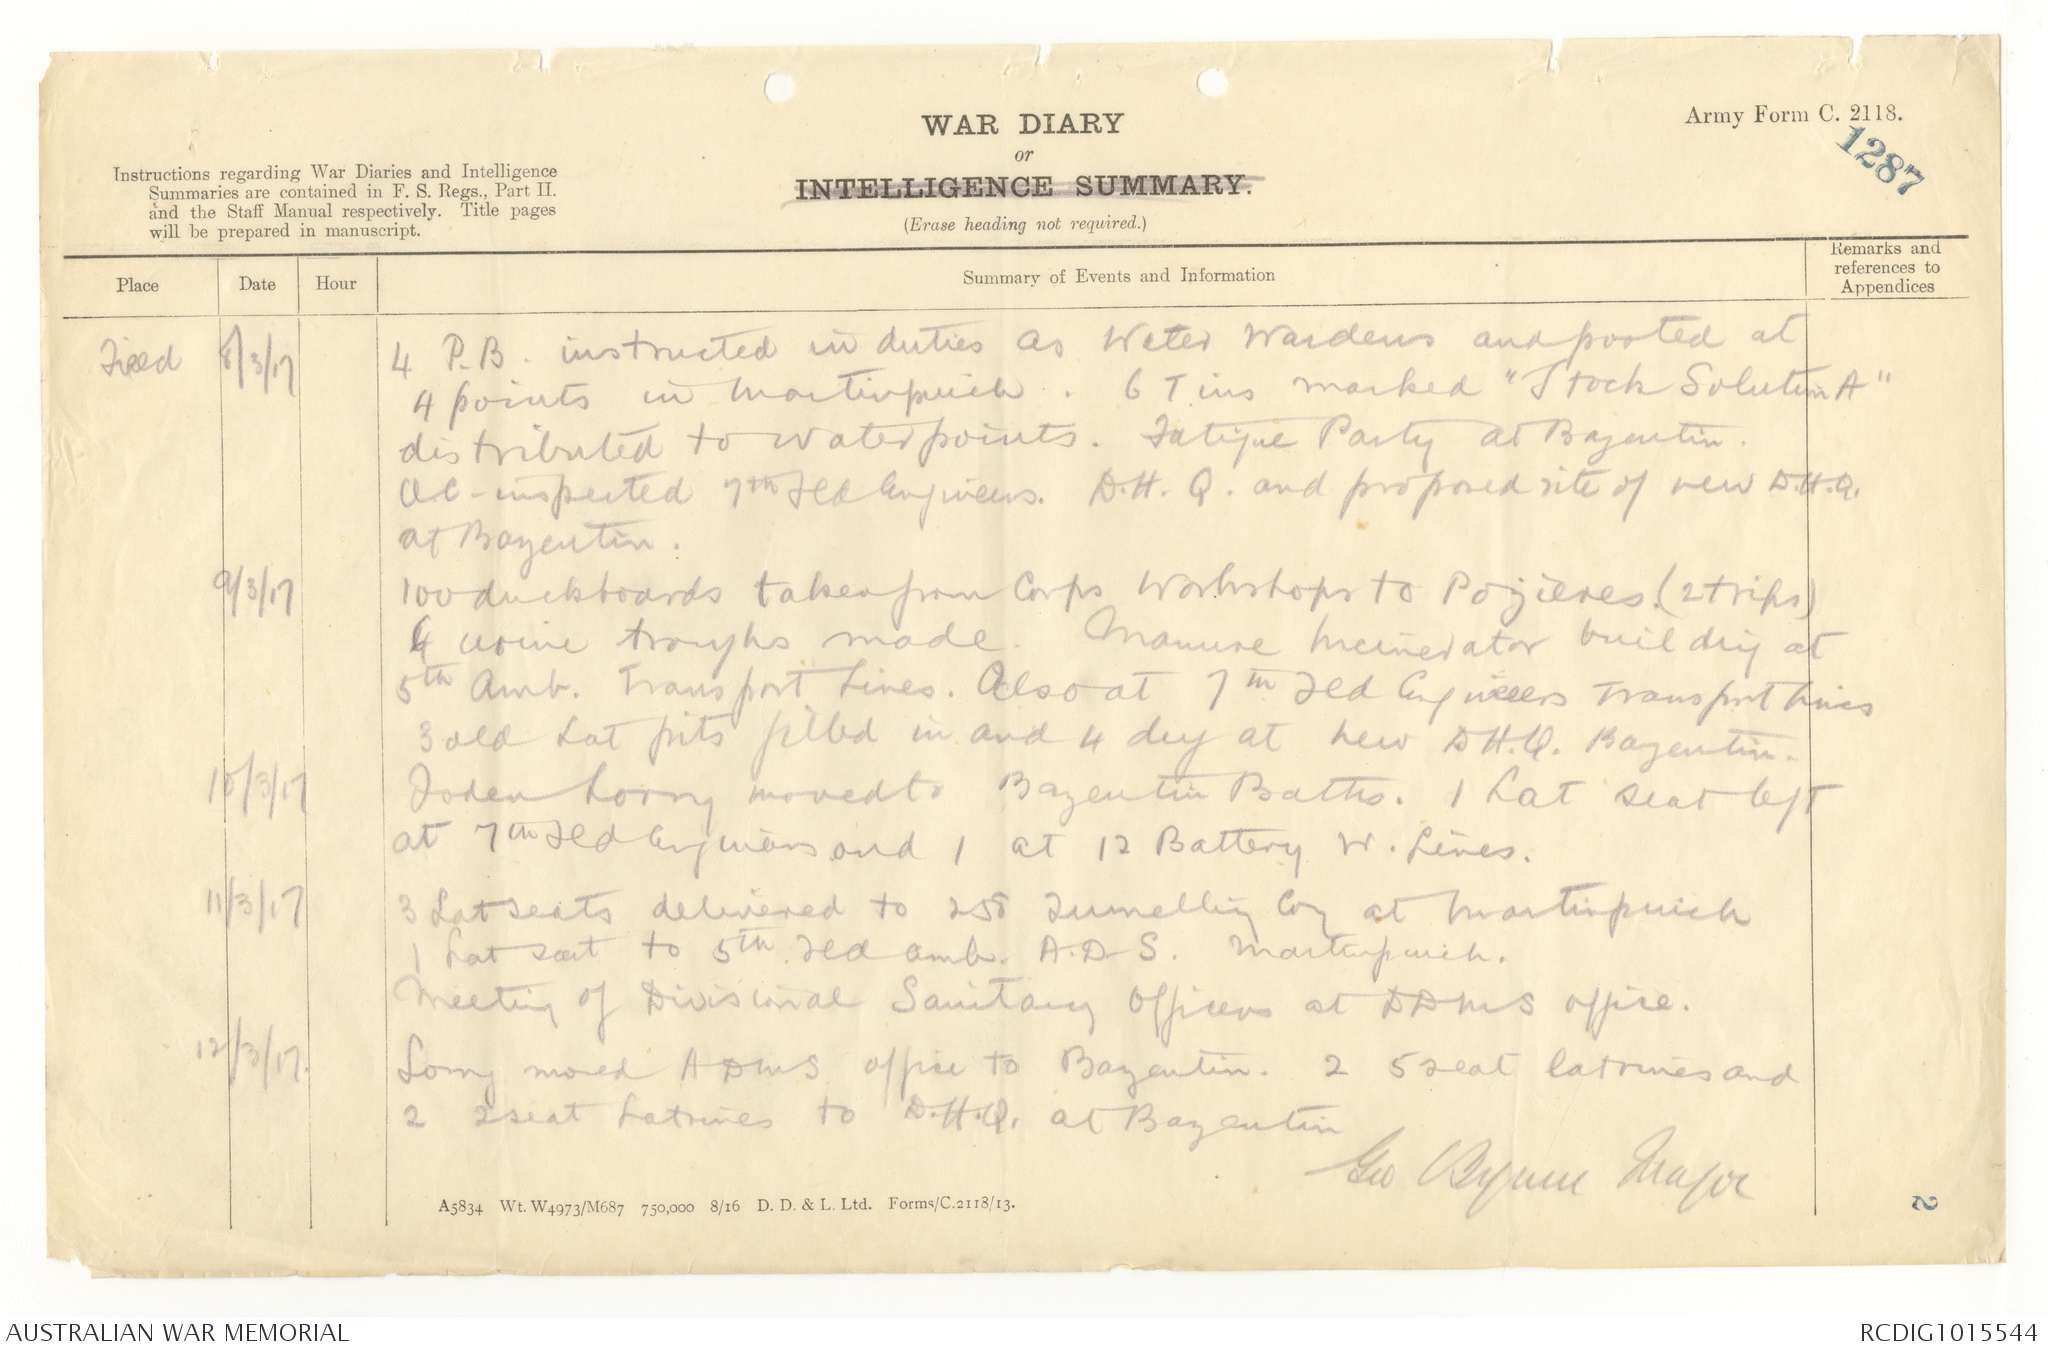 WAR DIARY
or
INTELLIGENCE SUMMARY.
(Erase heading not required.)
Army Form C. 2118.
1287
Instructions regarding War Diaries and Intelligence
Summaries are contained in F. S. Regs., Part II.
and the Staff Manual respectively. Title pages
will be prepared in manuscript.
Place Date Hour Summary of Events and Information Remarks and references to Appendices
Field 8/3/17 4 P.B. instructed in duties as Water Wardens and posted at
4 points in Martinpuich. 6 Tins marked "Stock Solution A"
distributed to water points. Fatigue Party at Bazentin.
OC inspected 7th Fld Engineers. D.H.Q. and proposed site of new D.H.Q.
at Bazentin.
9/3/17 100 duckboards taken from Corps Workshops to Pozieres. (2 trips)
urine troughs made. Manure Incinerator building at
5th Amb. Transport Lines. Also at 7th Fld Engineers Transport Lines
3 old Lat pits filled in and 4 dug at new D.H.Q. Bazentin.
10/3/17 Foden Lorry moved to Bazentin Baths. 1 Lat seat left
at 7th Fld Engineers and 1 at 12 Battery W. Lines.
11/3/17 3 Lat seats delivered to 258 Tunnelling Coy at Martinpuich
1 Lat seat to 5th Fld Amb. A.D.S. Martinpuich.
Meeting of Divisional Sanitary Officers at DDMS office.
12/3/17. Lorry moved ADMS office to Bazentin. 2 5 seat latrines and
2 2 seat Latrines to D.H.Q. at Bazentin
Geo Major
A5834 Wt. W4973/M687 750,000 8/16 D. D. & L. Ltd. Forms/C.2118/13.
2
AUSTRALIAN WAR MEMORIAL
RCDIG1015544